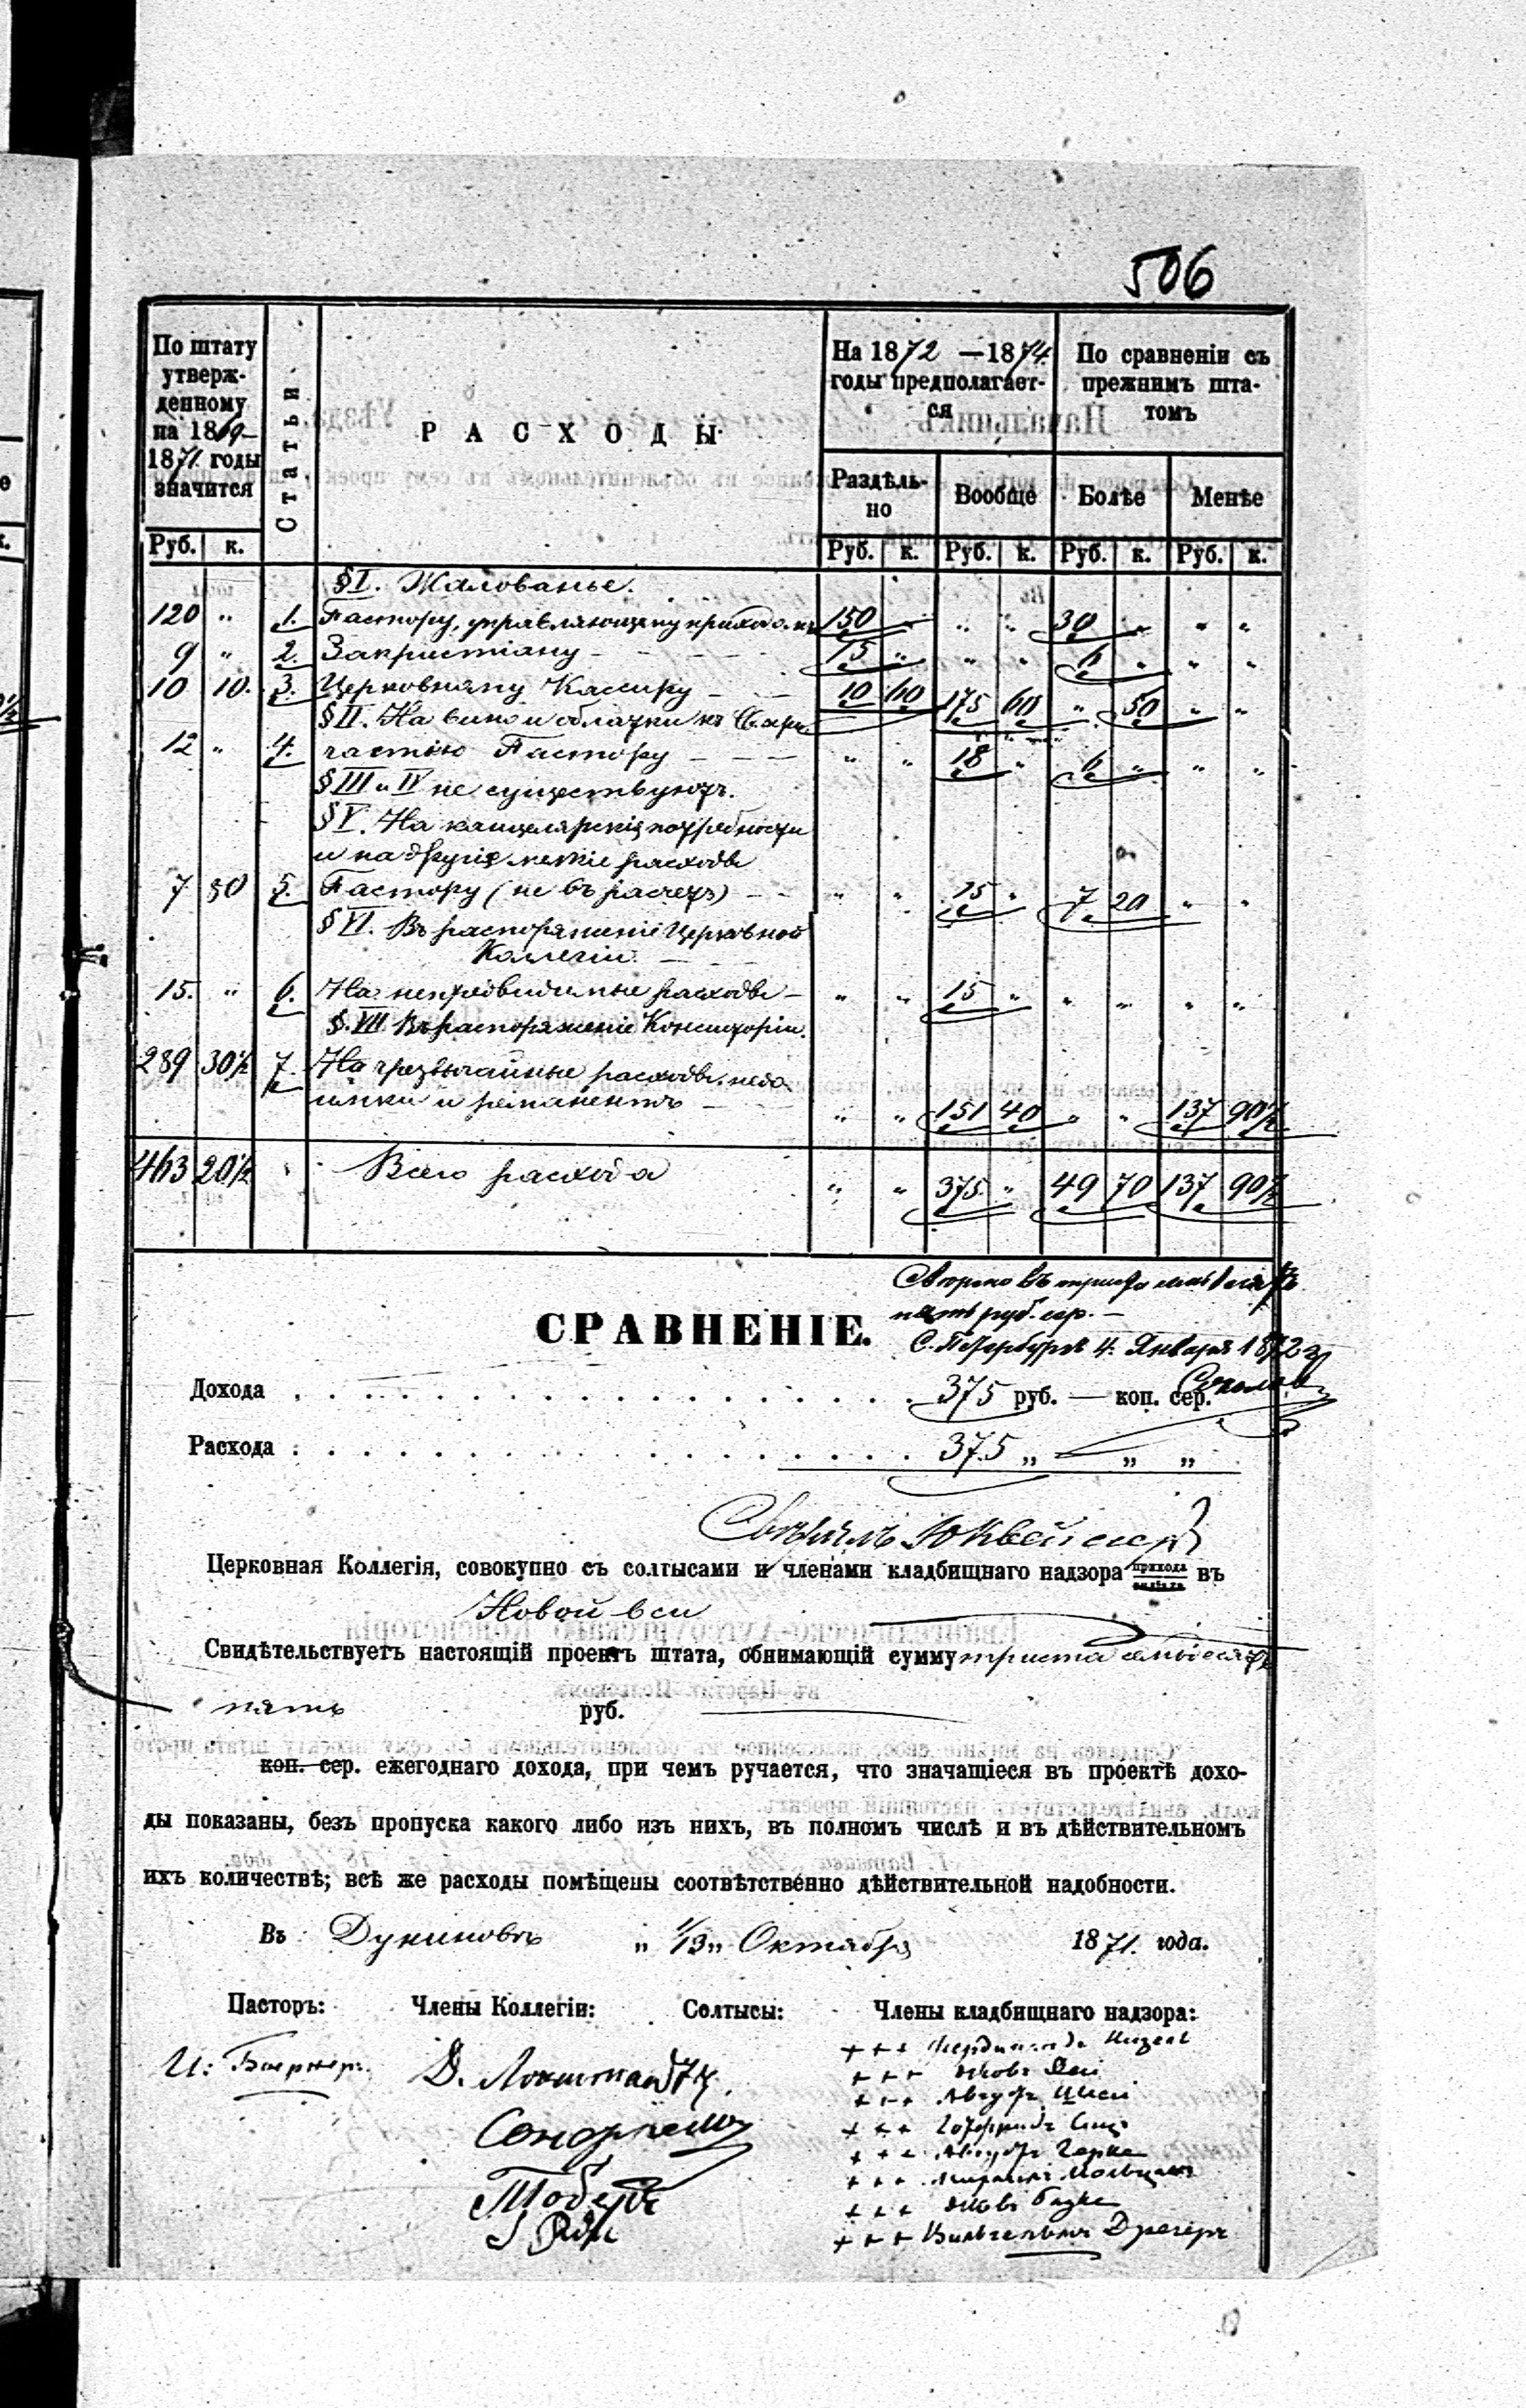 506
По штату утверж-
денному
на 1869-
1871. годы
значится
Статьи
РАСХОДЫ
На 1872 —1874
годы предполагает-
ся
По сравненіи съ
прежнимъ шта-
томъ
Раздѣль-
но
Вообще
Болѣе
Менѣе
Руб. к. Руб. к. Руб. к. Руб. к. Руб. к.
§ I. Жалованье.
120 " 1. Пастору, управляющему приходомъ 150 " " " 30 " " "
9 " 2. Закристіану - 15 " " " 6 " " "
10 10. 3. Церковному Кассиру - 10 60 175 60 " 50 " "
§ II. На вино и облатки къ Св. при-
12 " 4. частію Пастору - " " 18 " 6 " " "
§ III и IV не существуютъ.
§ V. На канцелярскія потребности
и на другіе мелкіе расходы
7 80 5. Пастору (не въ расчетъ) - " " 15 " 7 20 " "
§ VI. Въ распоряженіе Церковной
Коллегіи. -
15. " 6. На непредвидимые расходы - " " 15 " " " " "
§. VII Въ распоряженіе Консисторіи.
289 30½ 7. На чрезвычайные расходы, недо-
имки и ремонентъ - " " 151 40 " " 137 90½
463 20½ " Всего расхода " " 375 " 49 70 137 90½
пять руб. сер. —
С. Петербургъ 4. Января 1872 г
СРАВНЕНІЕ.
Дохода . . . . 375 руб. — коп. сер.
Расхода . . . . 375 „ — „ „
Церковная Коллегія, совокупно съ солтысами и членами кладбищнаго надзора прихода филіала въ
Новой вси
Свидѣтельствуетъ настоящій проектъ штата, обнимающій сумму триста семьдесятъ
пять руб. —
коп. сер. ежегоднаго дохода, при чемъ ручается, что значащіеся въ проектѣ дохо-
ды показаны, безъ пропуска какого либо изъ нихъ, въ полномъ числѣ и въ дѣйствительномъ
ихъ количествѣ; всѣ же расходы помѣщены соотвѣтственно дѣйствительной надобности.
Въ Дуниновѣ „ 1/13 „ Октября 1871. года.
Пасторъ: Члены Коллегіи: Солтысы: Члены кладбищнаго надзора:
+ + + Фердинандъ
+ + + Яковъ
+ + + Августъ
+ + + Готфридъ
+ + + Августъ Герке
+ + +
+ + + Яковъ
+ + + Вильгельмъ Дрегеръ